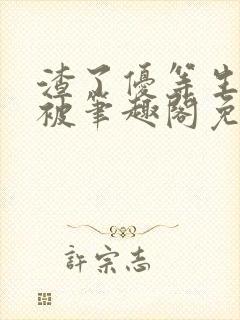 渣了優等生
被筆趣閣免
許宗志